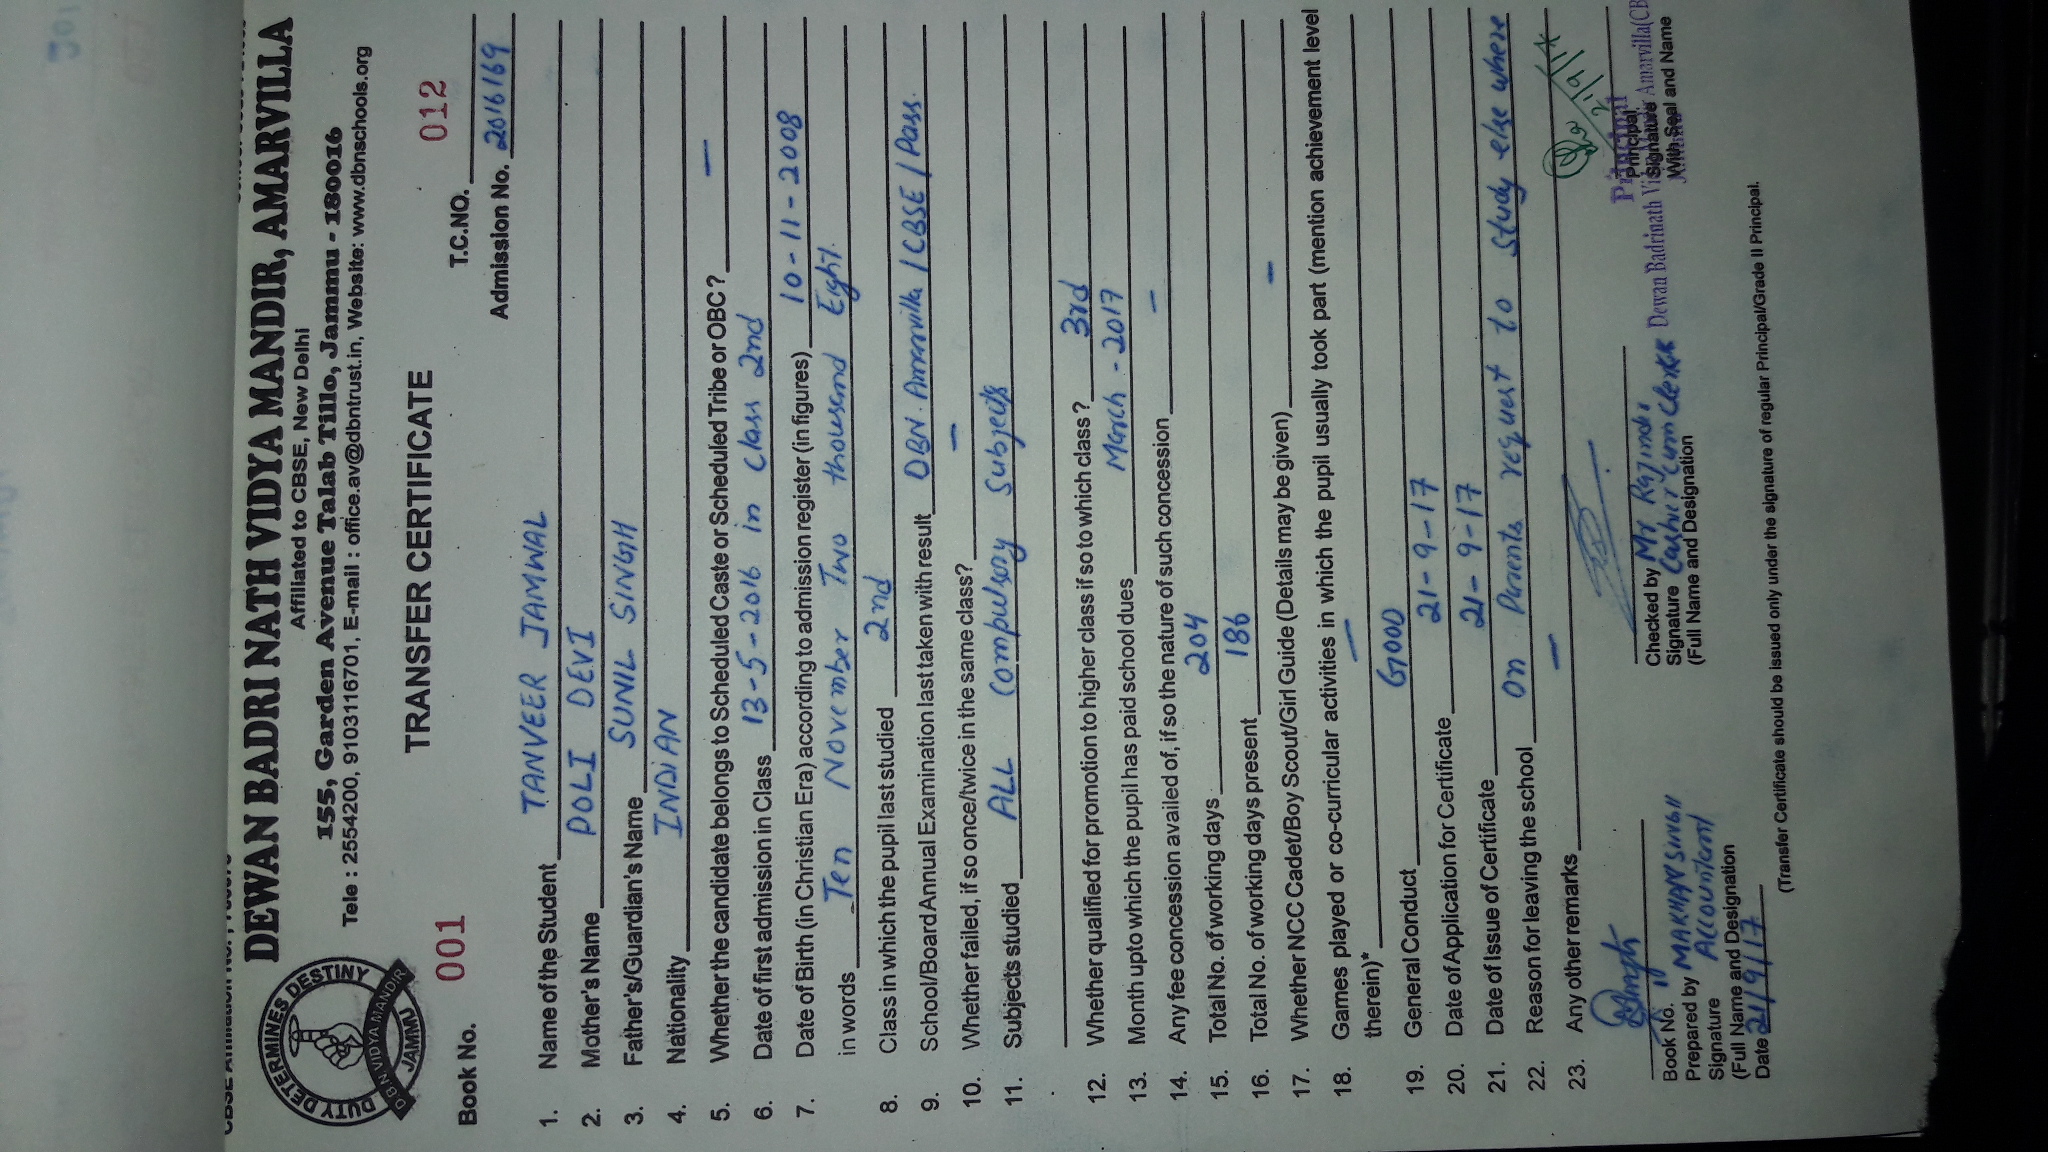 DEWAN BADRI NATH VIDYA MANDIR, AMARVILLA
Affiliated to CBSE, New Delhi
155, Garden Avenue Talab Tillo, Jammu - 180016
Tele : 2554200, 9103116701, E-mail : office.av@dbntrust.in, Website: www.dbnschools.org
DUTY DETERMINES DESTINY
D.B.N VIDYA MANDIR
JAMMU
TRANSFER CERTIFICATE
Book No. 001
T.C.NO. 012
Admission No. 2016169
1. Name of the Student TANVEER JAMWAL
2. Mother's Name POLI DEVI
3. Father's/Guardian's Name SUNIL SINGH
4. Nationality INDIAN
5. Whether the candidate belongs to Scheduled Caste or Scheduled Tribe or OBC? —
6. Date of first admission in Class 13-5-2016 in Class 2nd
7. Date of Birth (in Christian Era) according to admission register (in figures) 10-11-2008
in words Ten November Two thousand Eight.
8. Class in which the pupil last studied 2nd
9. School/Board Annual Examination last taken with result DBN. Amarvilla / CBSE / Pass.
10. Whether failed, if so once/twice in the same class? —
11. Subjects studied ALL Compulsory Subjects
12. Whether qualified for promotion to higher class if so to which class? 3rd
13. Month upto which the pupil has paid school dues March - 2017
14. Any fee concession availed of, if so the nature of such concession -
15. Total No. of working days 204
16. Total No. of working days present 186
17. Whether NCC Cadet/Boy Scout/Girl Guide (Details may be given) -
18. Games played or co-curricular activities in which the pupil usually took part (mention achievement level
therein)* —
19. General Conduct GOOD
20. Date of Application for Certificate 21-9-17
21. Date of Issue of Certificate 21-9-17
22. Reason for leaving the school On Parents request to study else where
23. Any other remarks —
Book No.
Prepared by MAKHAN SINGH
Signature Accountant
(Full Name and Designation
Date 21/9/17
Checked by Mr Rajinder
Signature Cashier cum Clerk
(Full Name and Designation)
Principal
Dewan Badrinath Vi Amarvilla(CB
Principal
Signature
With Seal and Name
(Transfer Certificate should be issued only under the signature of regular Principal/Grade II Principal.